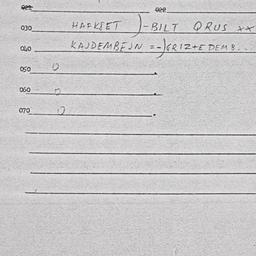 030 HAFKEET )-BILT QRUS **
040 KAJDEMBEJN =-)GRIZ+E DEMB...
050 0
060 0
070 0